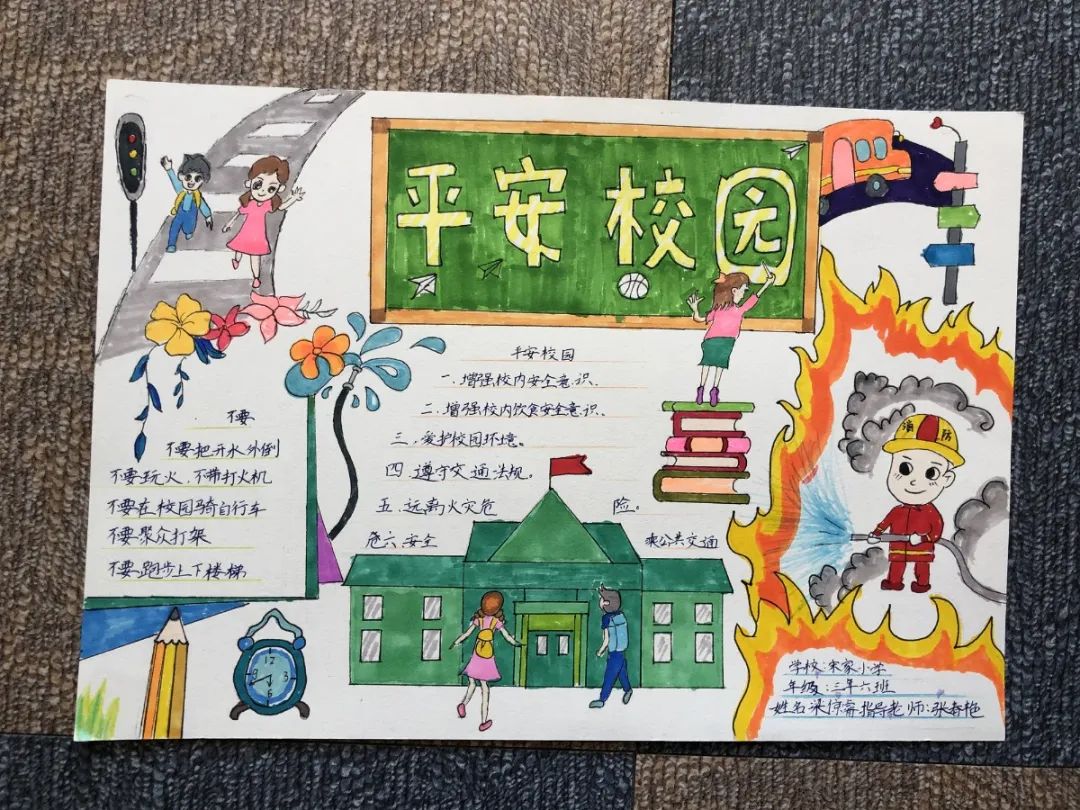 平安校园
平安校园
一.增强校内安全意识、
二.增强校内饮食安全意识、
三.爱护校园环境。
四.遵守交通法规。
五.远离火灾危险。
六.安全乘公共交通
不要
不要把开水外倒
不要玩火.不带打火机
不要在校园骑自行车
不要聚众打架
不要跑步上下楼梯
消防
12
3
6
9
学校:宋家小学
年级:三年六班
姓名 指导老师:张春艳